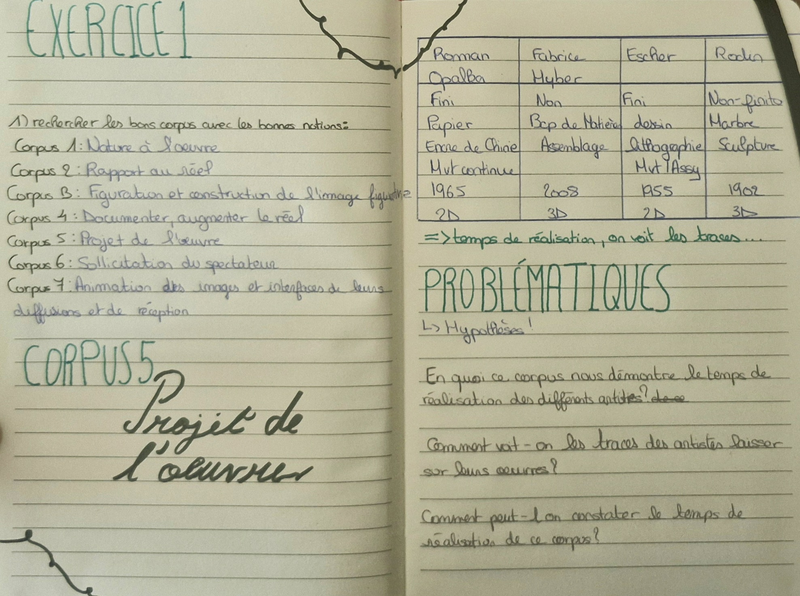 EXERCICE 1
1) rechercher les bons corpus avec les bonnes notions:
Corpus 1: Nature à l'oeuvre
Corpus 2: Rapport au réel
Corpus 3: Figuration et construction de l'image figurative
Corpus 4: Documenter, augmenter le réel
Corpus 5: Projet de l'oeuvre
Corpus 6: Sollicitation du spectateur
Corpus 7: Animation des images et interfaces de leurs
diffusions et de réception
CORPUS 5
Projet de
l'oeuvre
Roman Fabrice Escher Rodin
Opalba Hyber
Fini Non Fini Non-finito
Papier Bcp de Matières dessin Marbre
Encre de Chine Assemblage lithographie Sculpture
Mvt continue Mvt/Assy
1965 2008 1955 1902
2D 3D 2D 3D
=> temps de réalisation, on voit les traces...
PROBLÉMATIQUES
↳ Hypothèses!
En quoi ce corpus nous démontre le temps de
réalisation des différents
Comment voit-on les traces des artistes laisser
sur leurs oeuvres?
Comment peut-l on constater le temps de
réalisation de ce corpus?